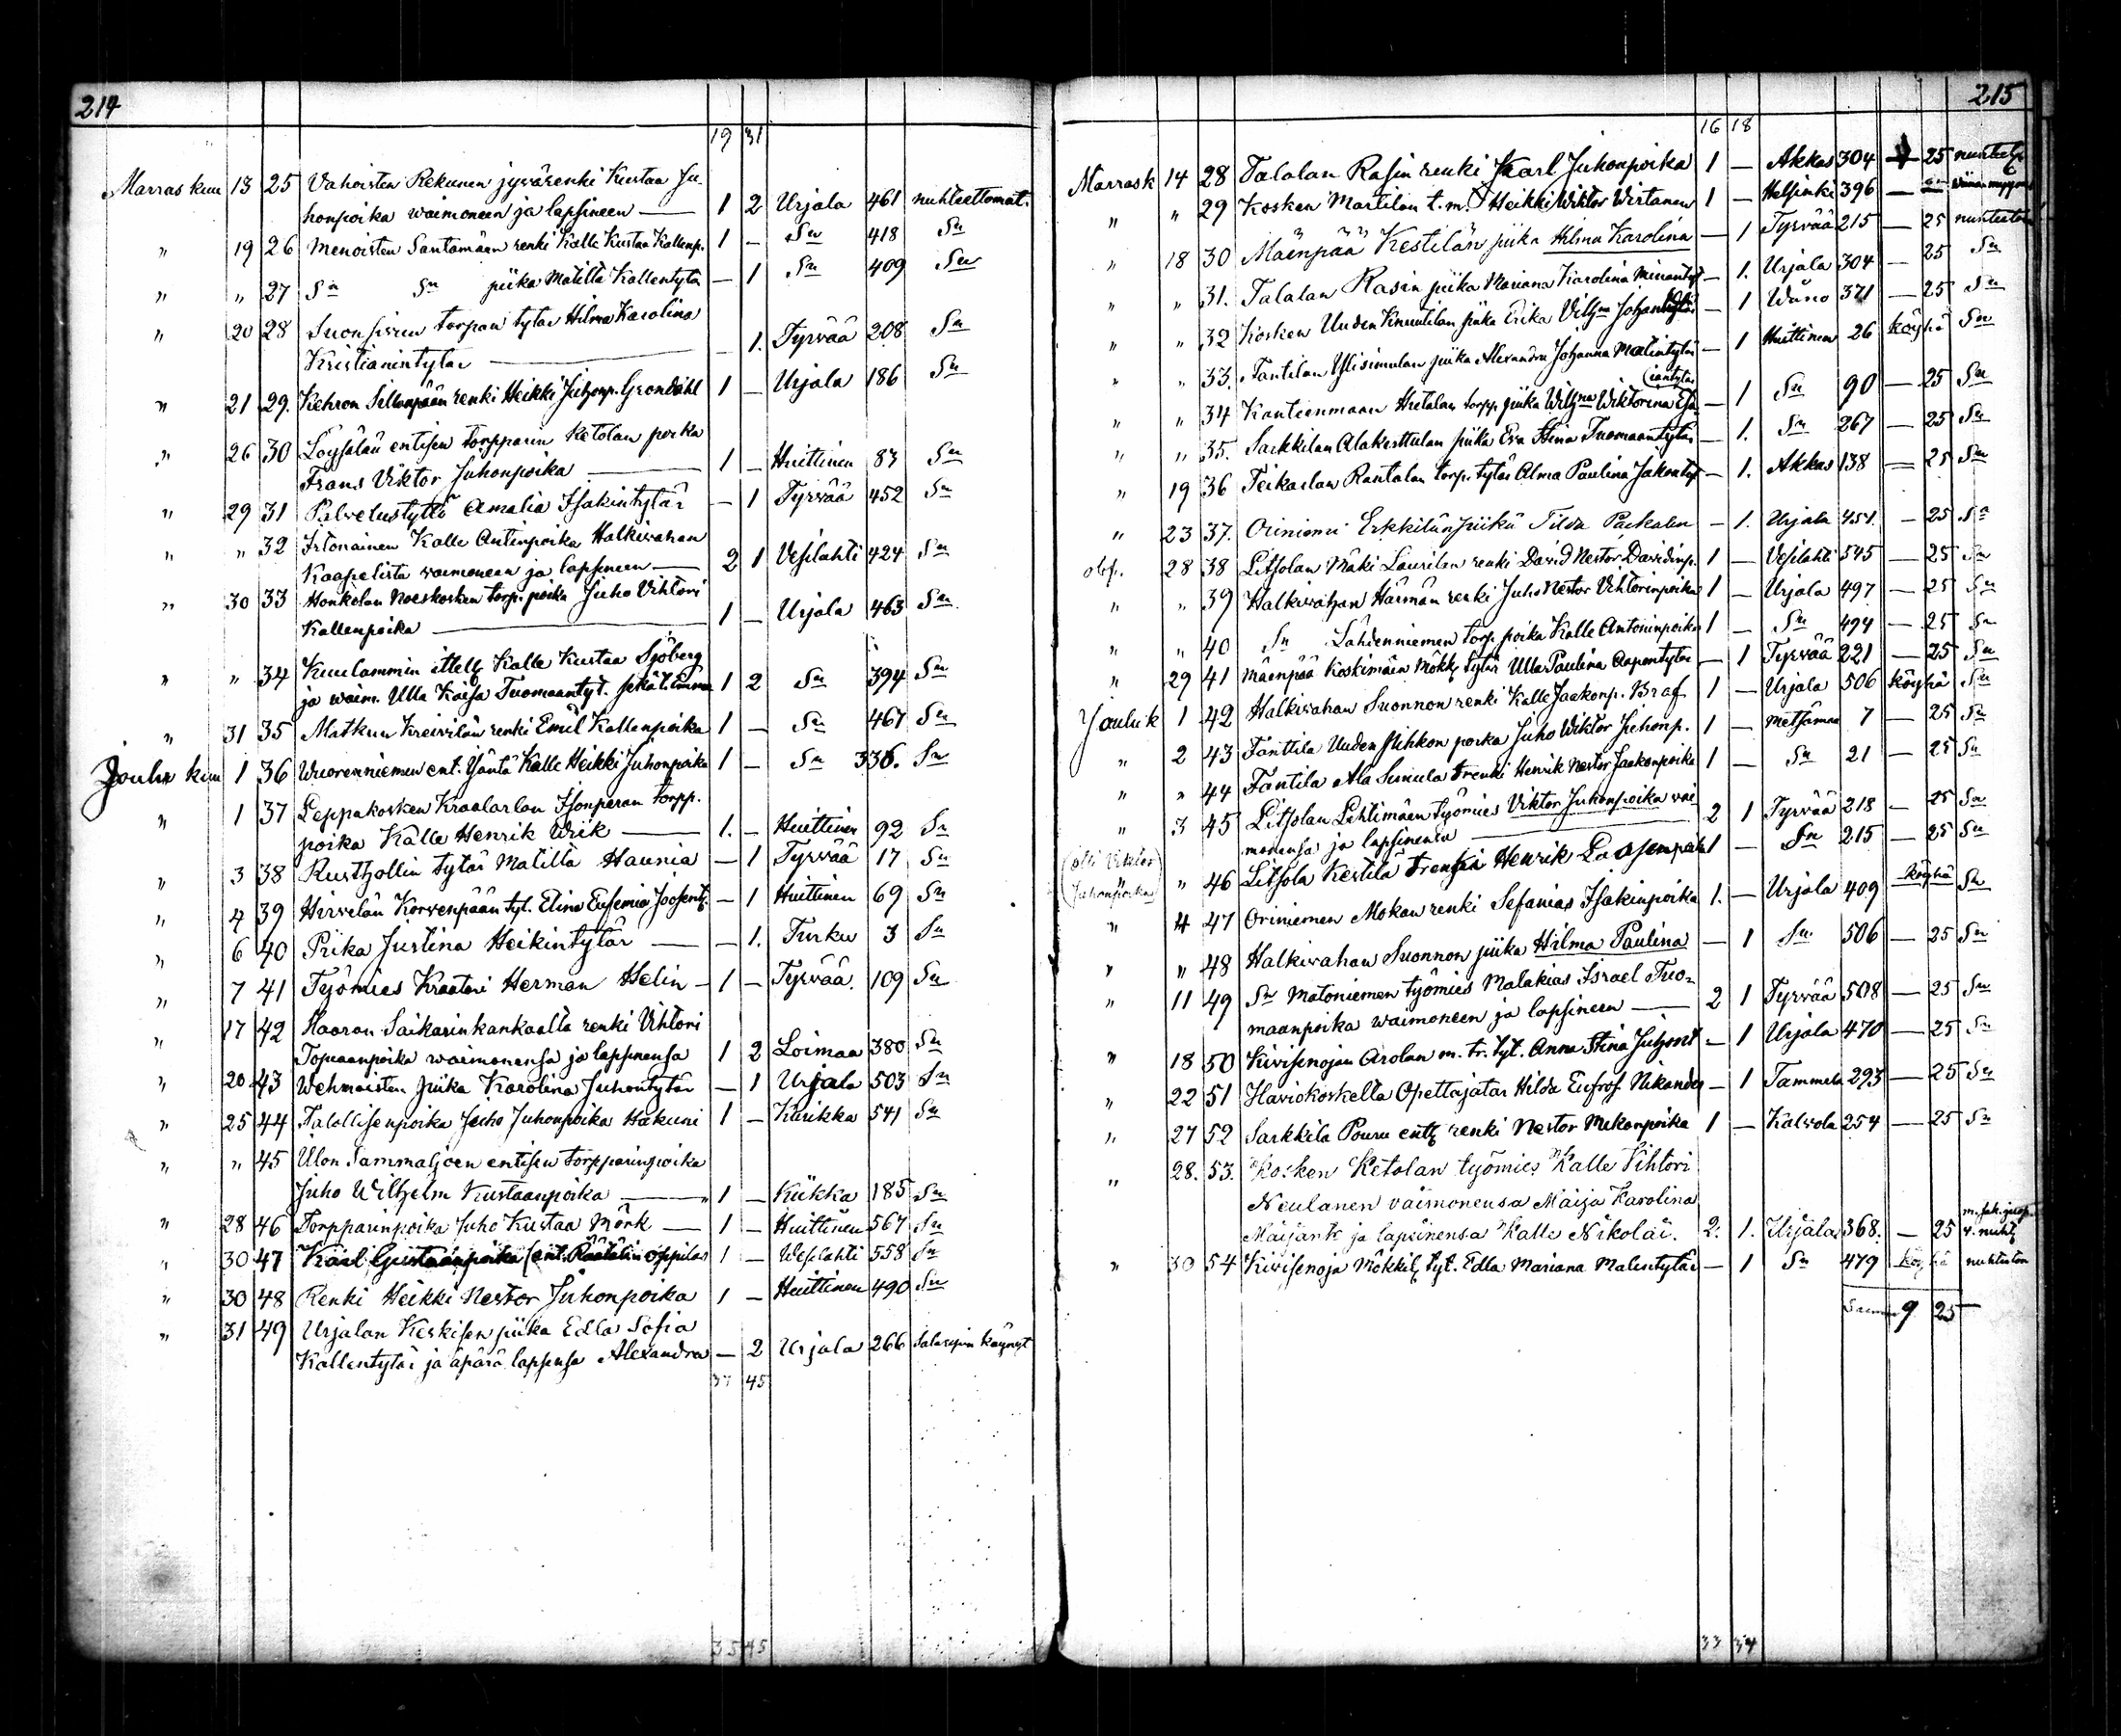 214
19 31
Marraskuu 13 25 Vahoisten Rekunen jyvärenki Kustaa Ju-
honpoika waimoneen ja lapsineen — 1 2 Urjala 461 nuhteettomat.
" 19 26 Menoisten Santamäen renki Kalle Kustaa Kallenp. 1 — Sn 418 Sn
" " 27 Sn Sn piika Matilta Kallentytär — 1 Sn 409 Sn
" 20 28 Suonsivun torpan tytär Hilma Karolina
Kristianintytär — 1. Tyrvää 208 Sn
" 21 29. Kehron Sillanpään renki Heikki Juhonp. Grondahl 1 — Urjala 186 Sn
" 26 30 Löysälän entisen torpparin Ketolan poika
Frans Viktor Juhonpoika — 1 — Huittinen 83 Sn
" 29 31 Palvelustyttö Amalia Isakintytär — 1 Tyrvää 452 Sn
" " 32 Irtonainen Kalle Antinpoika Halkivahan
Kaapelista waimoneen ja lapsineen — 2 1 Vesilahti 424 Sn
" 30 33 Honkolan Noeskosken torp. poika Juho Vihtori
Kallenpoika — 1 — Urjala 463 Sn
" " 34 Kuulammin ittell. Kalle Kustaa Sjöberg
ja waim. Ulla Kaisa Tuomaantyt. 1 2 Sn 394 Sn
" 31 35 Matkun Kreivilän renki Emil Kallenpoika 1 — Sn 467 Sn
Joulu kuu 1 36 Wuorenniemen ent. Yäntä Kalle Heikki Juhonpoika 1 — Sn 336. Sn
" 1 37 Leppäkosken Kraalarlan Isonperan torpp.
poika Kalle Henrik Wiik — 1. — Huittinen 92 Sn
" 3 38 Rusthollin tytär Matilta Haunia — 1 Tyrvää 17 Sn
" 4 39 Hirvelän Korvenpään tyt. Elina Eufemia Joosent. — 1 Huittinen 69 Sn
" 6 40 Piika Justina Heikintytär — — 1. Turku 3 Sn
" 7 41 Työmies Kraatari Herman Helin — 1 — Tyrvää. 109 Sn
" 17 42 Haaran Saikarinkankaalta renki Vihtori
Topiaanpoika waimonensa ja lapsinensa 1 2 Loimaa 380 Sn
" 20 43 Wehmaisten piika Karolina Juhontytär — 1 Urjala 503 Sn
" 25 44 Talollisenpoika Juho Juhonpoika Hakuni 1 — Karikka 541 Sn
" " 45 Ulon Sammaljoen entisen torpparinpoika
Juho Wilhelm Kustaanpoika — 1 — Kiikka 185 Sn
" 28 46 Torpparinpoika Juho Kustaa Mörk — 1 — Huittinen 567 Sn
" 30 47 Kaarl Gustaanpoika (ent. Räätälin oppilas 1 — Wesilahti 558 Sn
" 30 48 Renki Heikki Nestor Juhonpoika 1 — Huittinen 490 Sn
" 31 49 Urjalan Keskisen piika Edla Sofia
Kallentytär ja äpärä lapsensa Alexandra — 2 Urjala 266 Salavuin käynyt
37 45
35 45
215
16 18
Marrask 14 28 Talalan Rasin renki Kaarl Juhonpoika 1 — Akkas 304 — 25
" " 29 Kosken Martilan t. m. Heikki Wiktor Wirtanen 1 — Helsinki 396 —
" 18 30 Mäenpää Kestilän piika Hilma Karolina — 1 Tyrvää 215 — 25
" " 31. Talalan Rasin piika Mariana Karolina — 1. Urjala 304 — 25 Sn
" " 32 Kosken Uuden Knuutilan piika Erika — 1 371 — 25 Sn
" " 33. Fantilan Ylisimulan piika Alexandra Johanna Matintytär — 1 Huittinen 26 köyhä Sn
" " 34 Kanteenmaan Hietalan torpp. piika Wilh:na Wiktorina Esa- (iantytär — 1 Sn 90 — 25 Sn
" " 35. Sarkkilan Alakerttulan piika Eva Stina Tuomaantytär — 1. Sn 267 — 25 Sn
" 19 36 Teikarlan Rantalan torp. tytär Alma Paulina Jakontyt — 1. Akkas 138 — 25 Sn
" 23 37. Orinieni Erkkilän piika Tilda Packalen — 1. Urjala 454 — 25 Sn
28 38 Litsolan Mäki Laurilan renki David Nestor Davidinp. 1 — Vesilahti 545 — 25 Sn
" " 39 Halkivahan Härmän renki Juho Nestor Vihtorinpoika 1 — Urjala 497 — 25 Sn
" " 40 Sn Lähdenniemen torp. poika Kalle Antoninpoika 1 — Sn 494 — 25 Sn
" 29 41 Mäenpää Koskimäen Mökk. tytär Ulla Paulina Aapontytär — 1 Tyrvää 221 — 25 Sn
Jouluk 1 42 Halkivahan Suonnon renki Kalle Jaakonp. Braf 1 — Urjala 506 köyhä Sn
" 2 43 Fänttila Uuden Mihkon poika Juho Wiktor Juhonp. 1 — Metsämaa 7 — 25 Sn
" " 44 Fantila Ala Simula renki Henrik Nestor Jaakonpoika 1 — Sn 21 — 25 Sn
" 3 45 Litsolan Lehtimäen työmies Viktor Juhonpoika vai-
monensa ja lapsinensa 2 1 Tyrvää 218 — 25 Sn
(Olli Viktor Juhonpoika) " 46 Litsola Kestilä renki Henrik 1 — Sn 215 — 25 Sn
" 4 47 Oriniemen Mokan renki Sefanias Isakinpoika 1. — Urjala 409 köyhä Sn
" " 48 Halkivahan Suonnon piika Hilma Paulina — 1 Sn 506 — 25 Sn
" 11 49 Sn Matoniemen työmies Malakias Israel Tuo-
maanpoika waimoneen ja lapsineen — 2 1 Tyrvää 508 — 25 Sn
" 18 50 Kivisenojan Arolan m. tr. tyt. Anna Stina Juhont — 1 Urjala 470 — 25 Sn
" 22 51 Haviokoskelta Opettajatar Hilda Eufros. Nikander — 1 Tammela 293 — 25 Sn
" 27 52 Sarkkila Pouru entl. renki Nestor Mikonpoika 1 — Kalvola 254 — 25 Sn
" 28. 53. Kosken Ketolan työmies Kalle Vihtori
Neulanen vaimonensa Maija Karolina
Maijant. ja lapsinensa Kalle Nikolai. 2. 1. Urjala 368. — 25
" 30 54 Kivisenoja Mökkil. tyt. Edla Mariana Matintytär — 1 Sn 479 köyhä nuhteeton
Summa 9 25 —
33 34